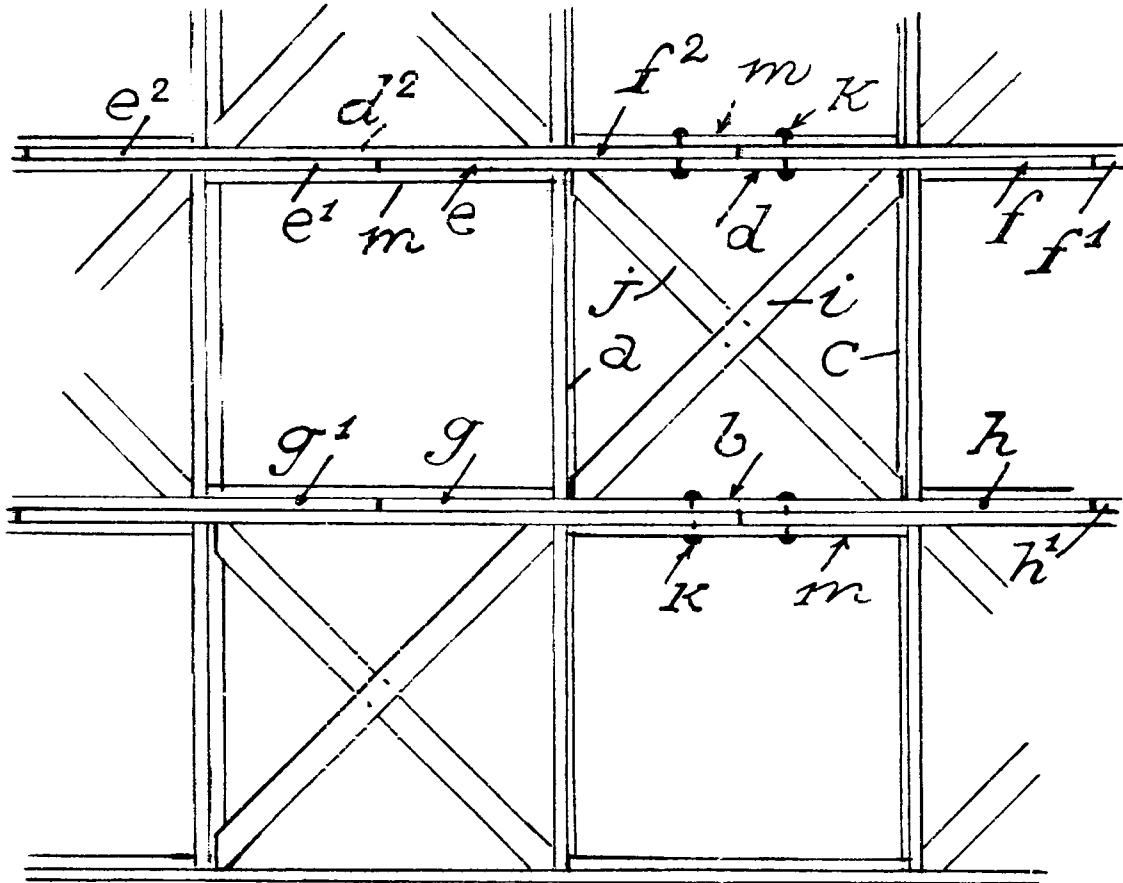 e² d² f² m k
e¹ m e d f f¹
j i
a c
g¹ g b h
k m h¹